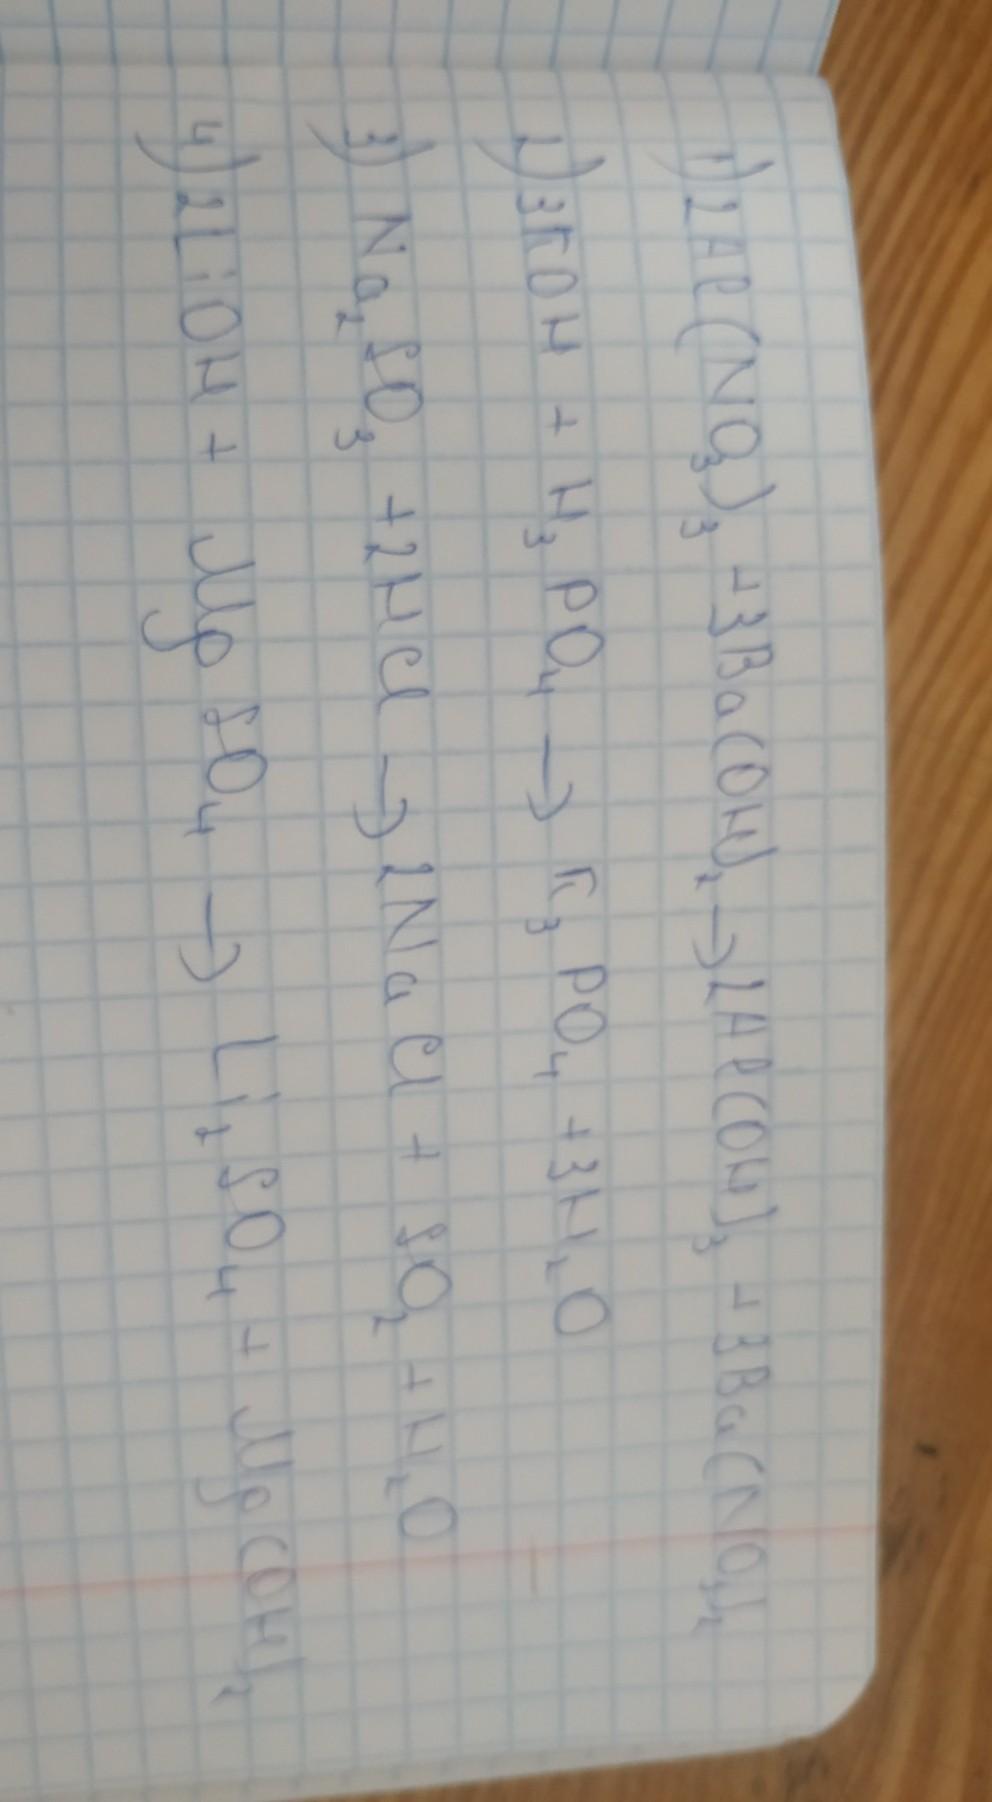 1) 2Al(NO₃)₃ + 3Ba(OH)₂ → 2Al(OH)₃ + 3Ba(NO₃)₂
2) 3KOH + H₃PO₄ → K₃PO₄ + 3H₂O
3) Na₂SO₃ + 2HCl → 2NaCl + SO₂ + H₂O
4) 2LiOH + MgSO₄ → Li₂SO₄ + Mg(OH)₂